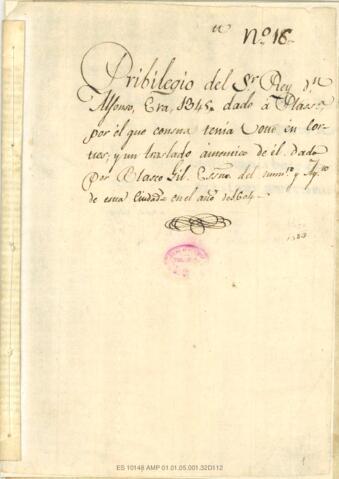 Nº 18
Pribilegio del Sr. Rey dn.
Alfonso, Era, 1345. dado à Plasª
por él que consta tenia Voto en Cor-
tes; y un traslado autentico de él. dado
por Blasco Gil. Essno. del numº. y Aymo
de esta Ciudad en el año de
ES 10148 AMP 01.01.05.001.32D112